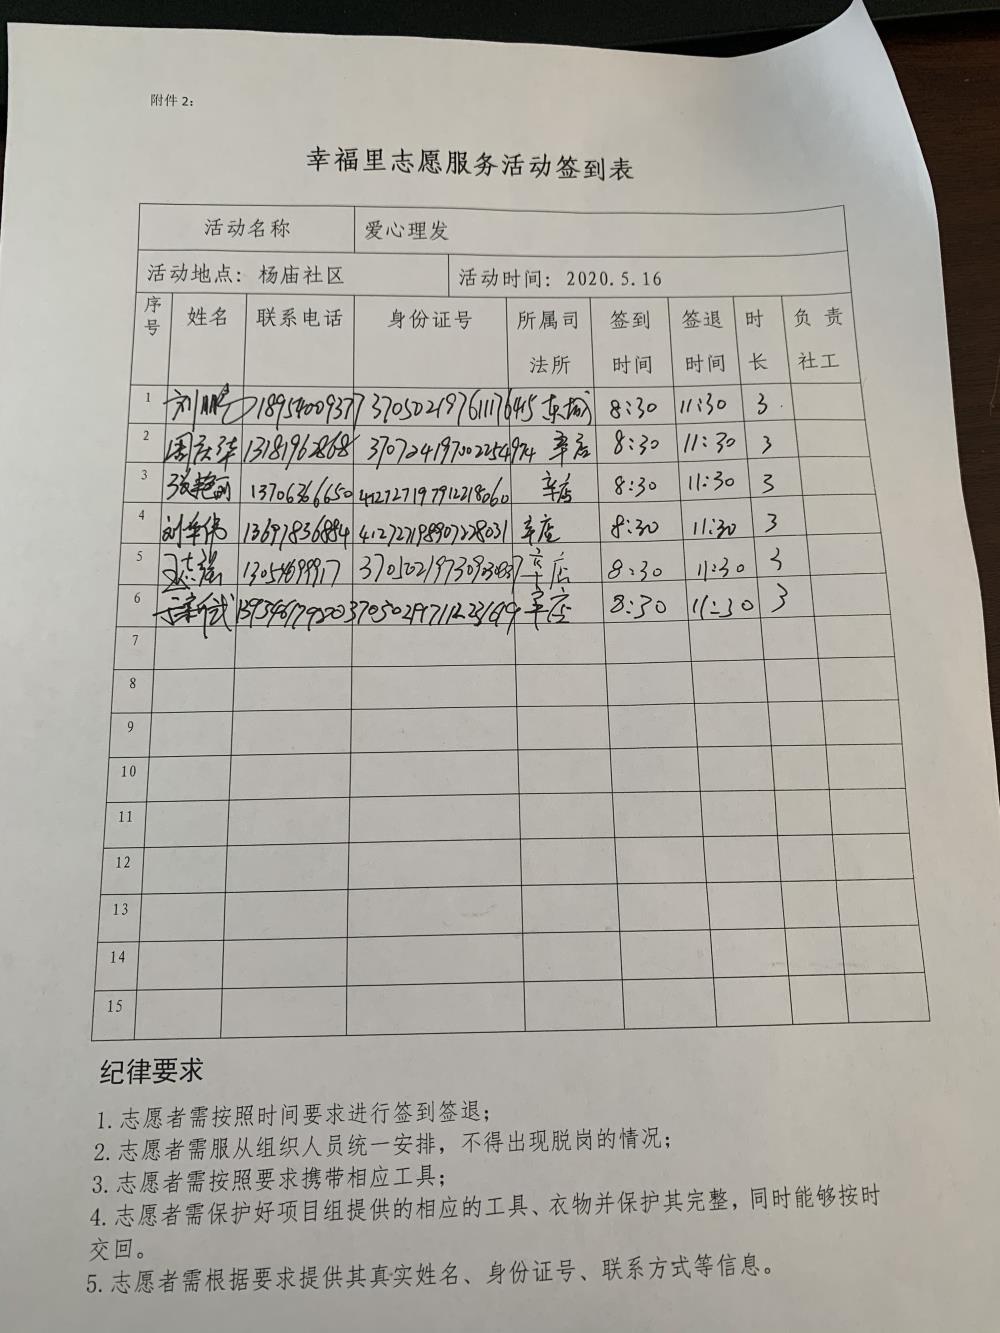 附件 2：
幸福里志愿服务活动签到表
活动名称 爱心理发
活动地点：杨庙社区 活动时间：2020.5.16
序号 姓名 联系电话 身份证号 所属司法所 签到时间 签退时间 时长 负责社工
1 刘鹏 18954009377 370502197611176415 东城 8:30 11:30 3
2 周庆华 13181962868 370724197002254974 辛店 8:30 11:30 3
3 张艳丽 13706366650 412727197912218060 辛店 8:30 11:30 3
4 刘华伟 13697836884 412727198907228031 辛店 8:30 11:30 3
5 志强 辛店 8:30 11:30 3
6 辛店 8:30 11:30 3
7
8
9
10
11
12
13
14
15
纪律要求
1.志愿者需按照时间要求进行签到签退；
2.志愿者需服从组织人员统一安排，不得出现脱岗的情况；
3.志愿者需按照要求携带相应工具；
4.志愿者需保护好项目组提供的相应的工具、衣物并保护其完整，同时能够按时
交回。
5.志愿者需根据要求提供其真实姓名、身份证号、联系方式等信息。